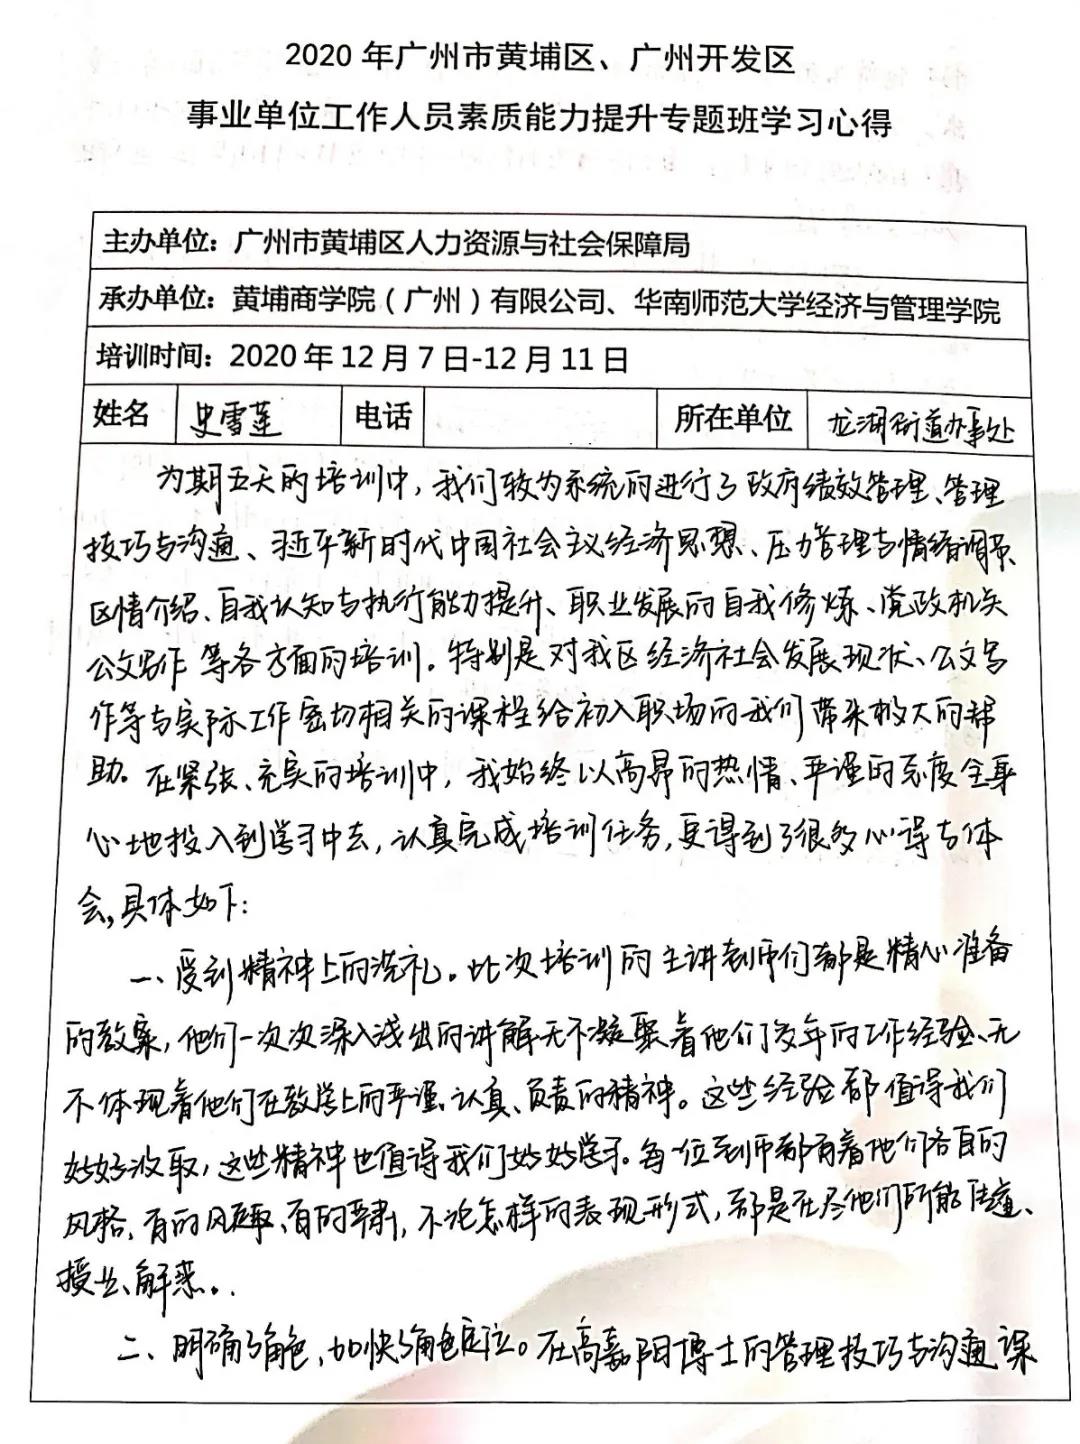 2020年广州市黄埔区、广州开发区
事业单位工作人员素质能力提升专题班学习心得
主办单位：广州市黄埔区人力资源与社会保障局
承办单位：黄埔商学院（广州）有限公司、华南师范大学经济与管理学院
培训时间：2020年12月7日-12月11日
姓名 史雪莲 电话 所在单位 龙湖街道办事处
为期五天的培训中，我们较为系统的进行了政府绩效管理、管理
技巧与沟通、习近平新时代中国社会主义经济思想、压力管理与情绪调节、
区情介绍、自我认知与执行能力提升、职业发展的自我修炼、党政机关
公文写作等各方面的培训。特别是对我区经济社会发展现状、公文写
作等与实际工作密切相关的课程给初入职场的我们带来极大的帮
助。在紧张、充实的培训中，我始终以高昂的热情、严谨的态度全身
心地投入到学习中去，认真完成培训任务，更得到了很多心得与体
会，具体如下：
一、受到精神上的洗礼。此次培训的主讲老师们都是精心准备
的教案，他们一次次深入浅出的讲解无不凝聚着他们多年的工作经验、无
不体现着他们在教学上的严谨、认真、负责的精神。这些经验都值得我们
好好汲取，这些精神也值得我们好好学习。每一位老师都有着他们各自的
风格，有的风趣、有的严肃，不论怎样的表现形式，都是在尽他们所能传道、
授业、解惑。
二、明确了角色，加快了角色定位。在高嘉阳博士的管理技巧与沟通课